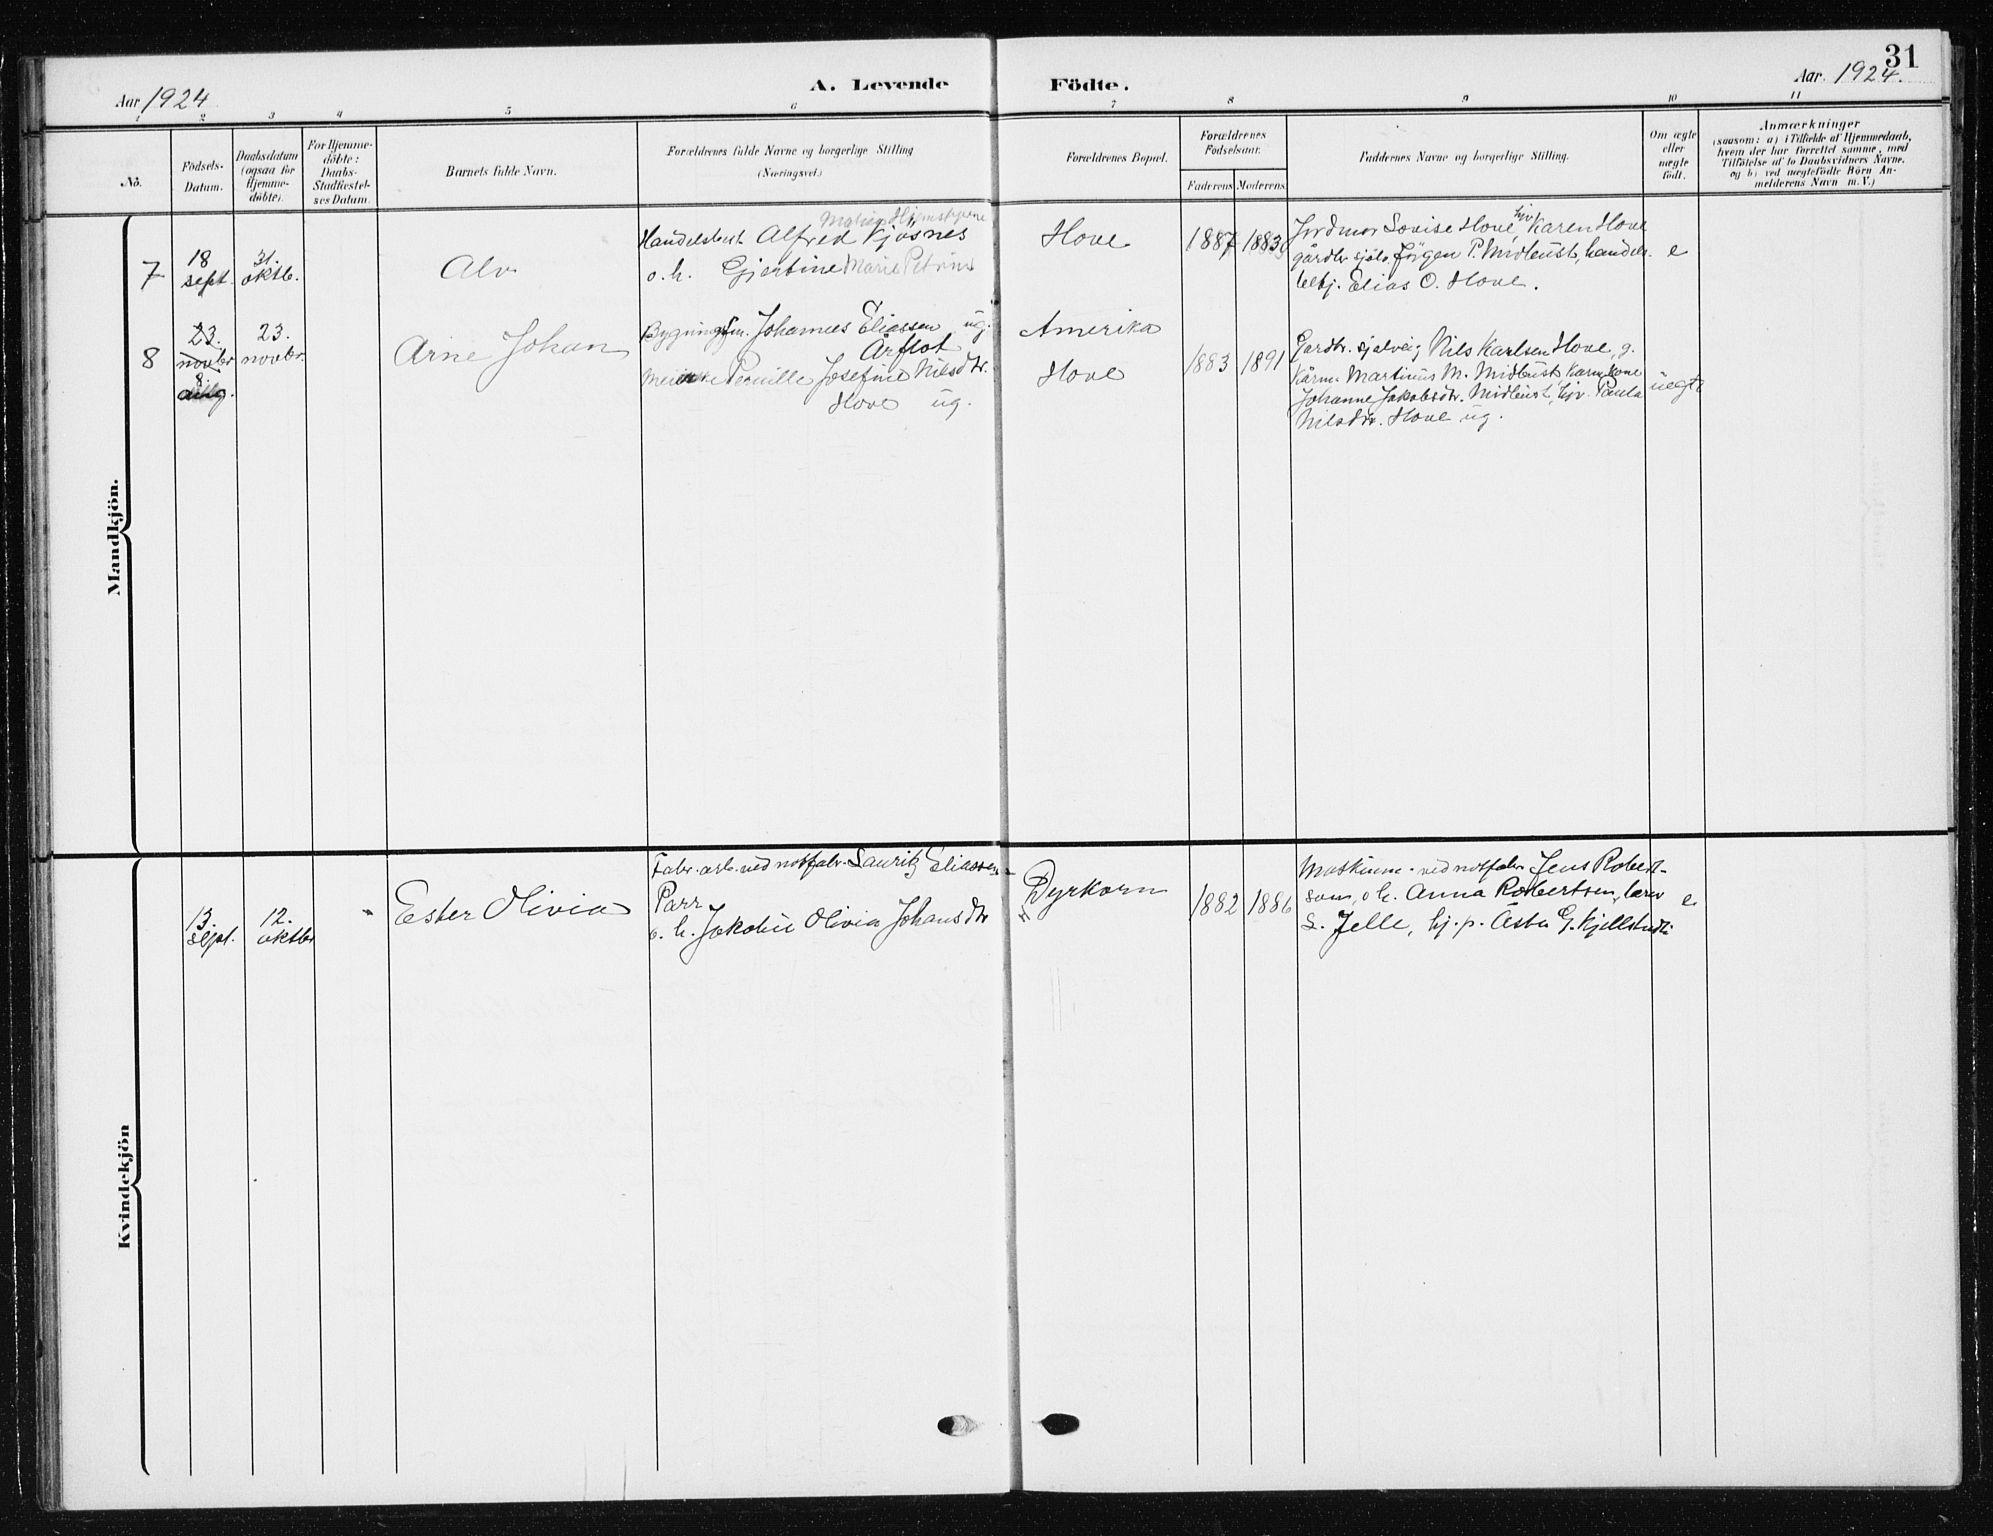 31
Aar 1924
A. Levende Födte.
Aar 1924.
1 2 3 4 5 6 7 8 9 10 11
No.
Födsels-
Datum.
Daabsdatum
(ogsaa for
Hjemme-
döbte).
For Hjemme-
döbte:
Daabs-
Stadfæstel-
ses Datum.
Barnets fulde Navn.
Forældrenes fulde Navne og borgerlige Stilling
(Næringsvei.)
Forældrenes Bopæl.
Forældrenes
Födselsaar.
Faderens Moderens
Faddernes Navne og borgerlige Stilling.
Om ægte
eller
uægte
födt.
Anmærkninger
(saasom: a) i Tilfælde af Hjemmedaab,
hvem der har forrettet samme, med
Tilföielse af to Daabsvidners Navne.
og b) ved uægtefödte Börn An-
melderens Navn m. V.)
Mandkjön.
7
18
sept.
31.
oktb.
Alv
Handelsbest. Alfred Kjøsnes
o. h. Gjertine Marie Petrine
Hove
1887 1883
Jordmor Lovise Hove Karen Hove
gårdbr. sjølv. Jørgen P. Midtust, handels-
betj. Elias O. Hove.
e
8
23.
novbr
8
aug.
23.
novbr.
Arne Johan
Bygningssn. Johannes Eliassen ug.
Årflot
Pernille Josefine Nilsdtr.
Hove ug.
Amerika
Hove
1883 1891
Gardbr. sjølveig Nils Karlsen Hove, g.
Kårm. Martinus M. Midtust Kårmkone
Johanne Jakobsdtr. Midtust, tjv. Paula
Nilsdtr. Hove ug.
uegte
Kvindekjön
13.
sept.
12.
oktbr
Ester Olivia
Fabr. arb. ved notfabr. Lauritz Eliassen
Parr
o. h. Jakobie Olivia Johansdtr
Dyrkorn
1882 1886
Maskinm. ved notfabr. Jens Robert-
som, o h. Anna Robertsen, lærer
L. Jelle, hj. p. Åsta G. Kjellstadli
e